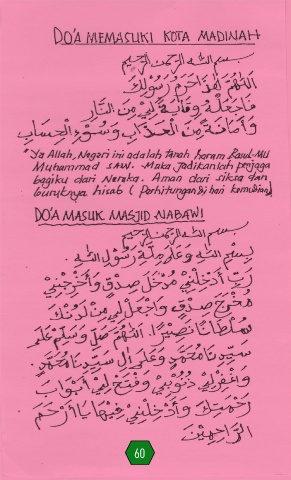 DO'A MEMASUKI KOTA MADINAH
بسم الله الرحمن الرحيم
اَللّٰهُمَّ هٰذَا حَرَمُ رَسُوْلِكَ
فَاجْعَلْهُ وِقَايَةً لِيْ مِنَ النَّارِ
وَأَمَانَةً مِنَ الْعَذَابِ وَسُوْءِ الْحِسَابِ
"Ya Allah, Negeri ini adalah tanah haram Rasul-MU
Muhammad SAW. Maka Jadikanlah penjaga
bagiku dari Neraka. Aman dari siksa dan
buruknya hisab (Perhitungan di hari kemudian)
DO'A MASUK MASJID NABAWI
بسم الله الرحمن الرحيم
بِسْمِ اللهِ وَعَلٰى مِلَّةِ رَسُوْلِ اللهِ.
رَبِّ أَدْخِلْنِيْ مُدْخَلَ صِدْقٍ وَأَخْرِجْنِيْ
مُخْرَجَ صِدْقٍ وَاجْعَلْ لِيْ مِنْ لَدُنْكَ
سُلْطَانًا نَصِيْرًا. اَللّٰهُمَّ صَلِّ وَسَلِّمْ عَلٰى
سَيِّدِنَا مُحَمَّدٍ وَعَلٰى اٰلِ سَيِّدِنَا مُحَمَّدٍ.
وَاغْفِرْ لِيْ ذُنُوْبِيْ وَفْتَحْ لِيْ أَبْوَابَ
رَحْمَتِكَ وَأَدْخِلْنِيْ فِيْهَا يَا أَرْحَمَ
الرَّاحِمِيْنَ
60